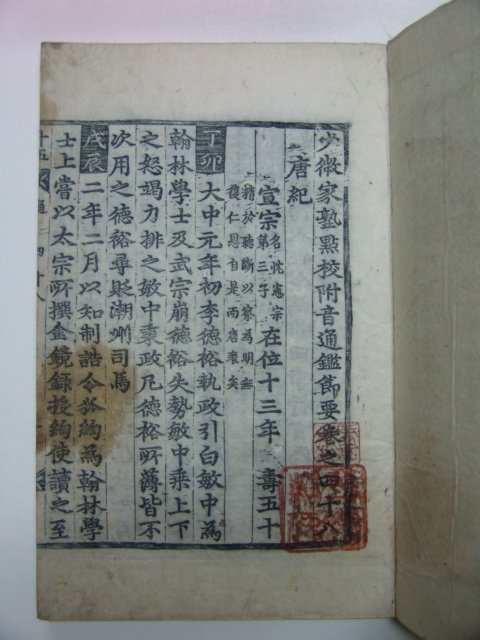 少微家塾點校附音通鑑節要卷之四十八
唐紀
宣宗名忱憲宗第三子在位十三年壽五十
精於聽斷以察為明無復仁恩自是而唐衰矣
丁卯大中元年初李德裕執政引白敏中為
翰林學士及武宗崩德裕失勢敏中乘上下
之怒竭力排之敏中秉政凡德裕所薄皆不
次用之德裕尋貶潮州司馬
戊辰二年二月以知制誥令狐綯為翰林學
士上嘗以太宗所撰金鏡錄授綯使讀之至